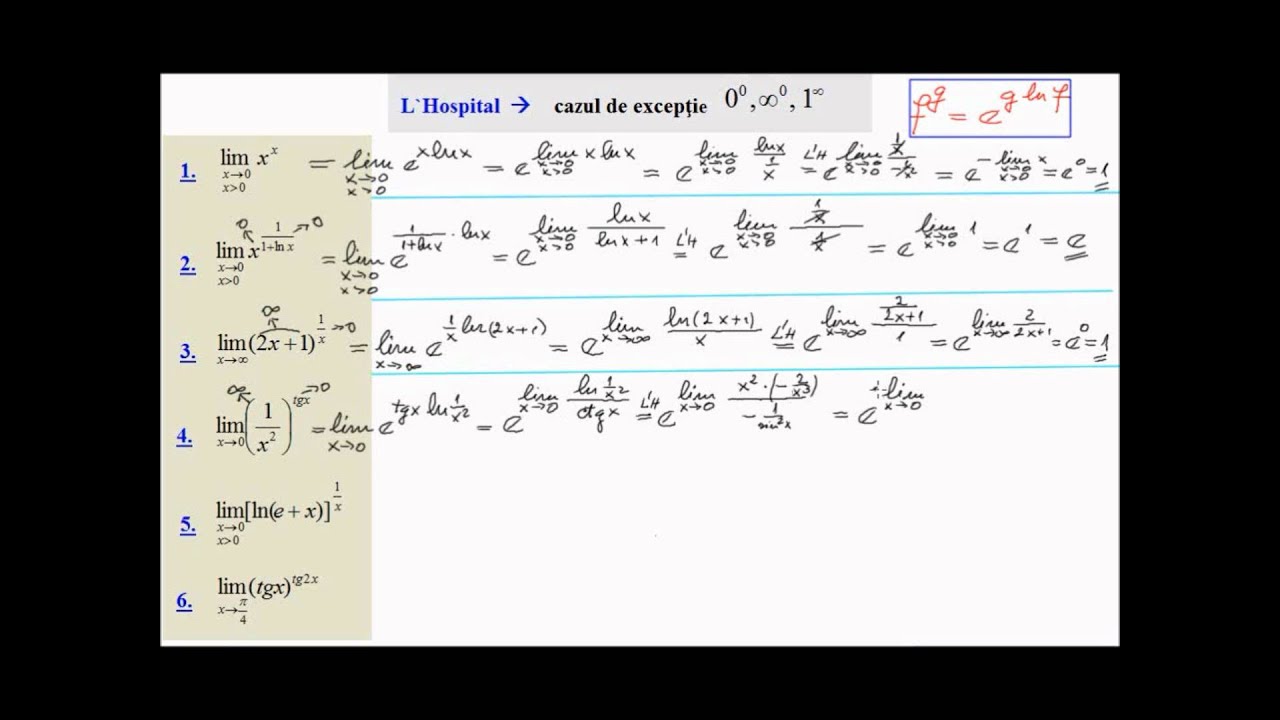 L`Hospital → cazul de excepţie 0⁰, ∞⁰, 1^∞
f^g = e^(g ln f)
1. lim_{x→0, x>0} x^x = lim_{x→0, x>0} e^(x ln x) = e^(lim_{x→0, x>0} x ln x) = e^(lim_{x→0, x>0} (ln x)/(1/x)) L'H = e^(lim_{x→0, x>0} (1/x)/(-1/x²)) = e^(-lim_{x→0, x>0} x) = e^0 = 1
2. lim_{x→0, x>0} x^(1/(1+ln x)) →0 0 = lim_{x→0, x>0} e^(1/(1+ln x) · ln x) = e^(lim_{x→0, x>0} (ln x)/(ln x+1)) L'H = e^(lim_{x→0, x>0} (1/x)/(1/x)) = e^(lim_{x→0, x>0} 1) = e^1 = e
3. lim_{x→∞} (2x+1)^(1/x) →0 ∞ = lim_{x→∞} e^(1/x ln(2x+1)) = e^(lim_{x→∞} ln(2x+1)/x) L'H = e^(lim_{x→∞} (2/(2x+1))/1) = e^(lim_{x→∞} 2/(2x+1)) = e^0 = 1
4. lim_{x→0} (1/x²)^(tgx) →0 ∞ = lim_{x→0} e^(tgx ln 1/x²) = e^(lim_{x→0} (ln 1/x²)/(ctg x)) L'H = e^(lim_{x→0} (x²·(-2/x³))/(-1/sin²x)) = e^(lim_{x→0}
5. lim_{x→0, x>0} [ln(e+x)]^(1/x)
6. lim_{x→π/4} (tgx)^(tg2x)